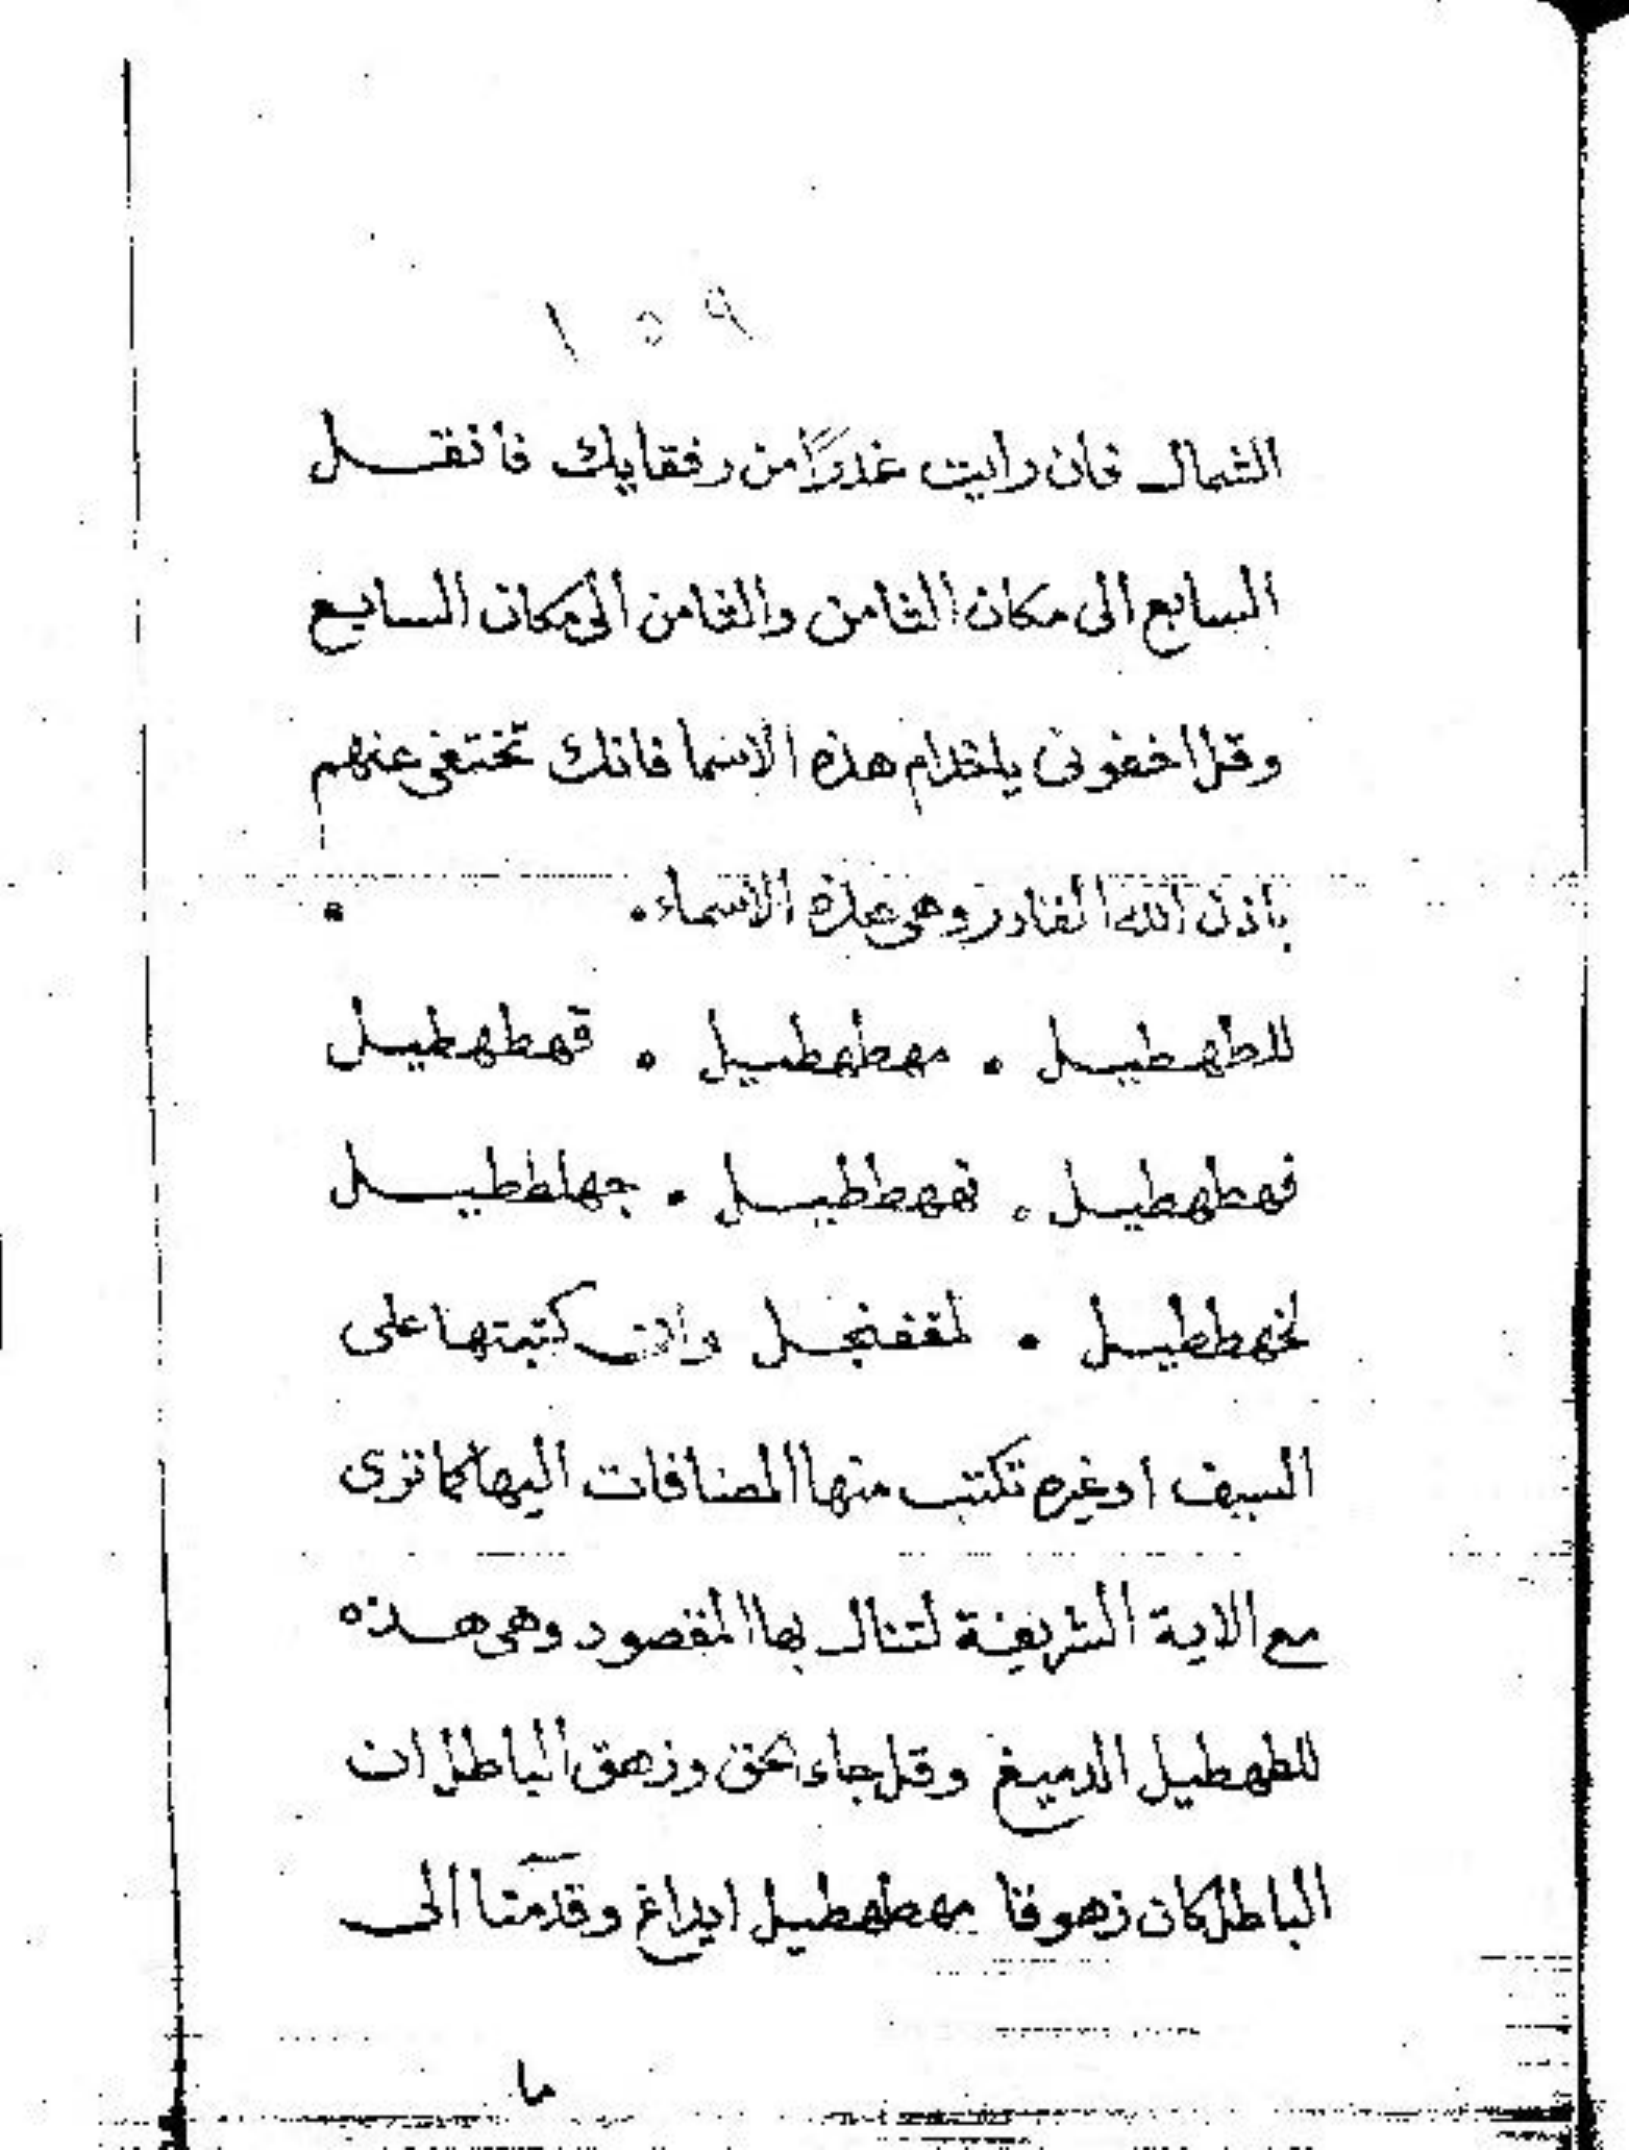 ١٥٩
الشمال فان رايت غدرًا من رفقايك فانقل
السابع الى مكان الثامن والثامن الى مكان السابع
وقل اخفونى ياخدام هذه الاسما فانك تختفى عنهم
باذن الله القادر وهى هذه الاسماء.
للطهطيل . مهطهطيل . قهطهطيل
فهطهطيل . نههططيل . جهلططيل
لخهططيل . لمقفنجل وان كتبتها على
السيف اوغيره تكتب منها المضافات اليها كما ترى
مع الاية الشريفة لتنال بها المقصود وهى هذه
للطهطيل الدميغ وقل جاء الحق وزهق الباطل ان
الباطل كان زهوقا مهطهطيل ايداغ وقدمنا الى
ما